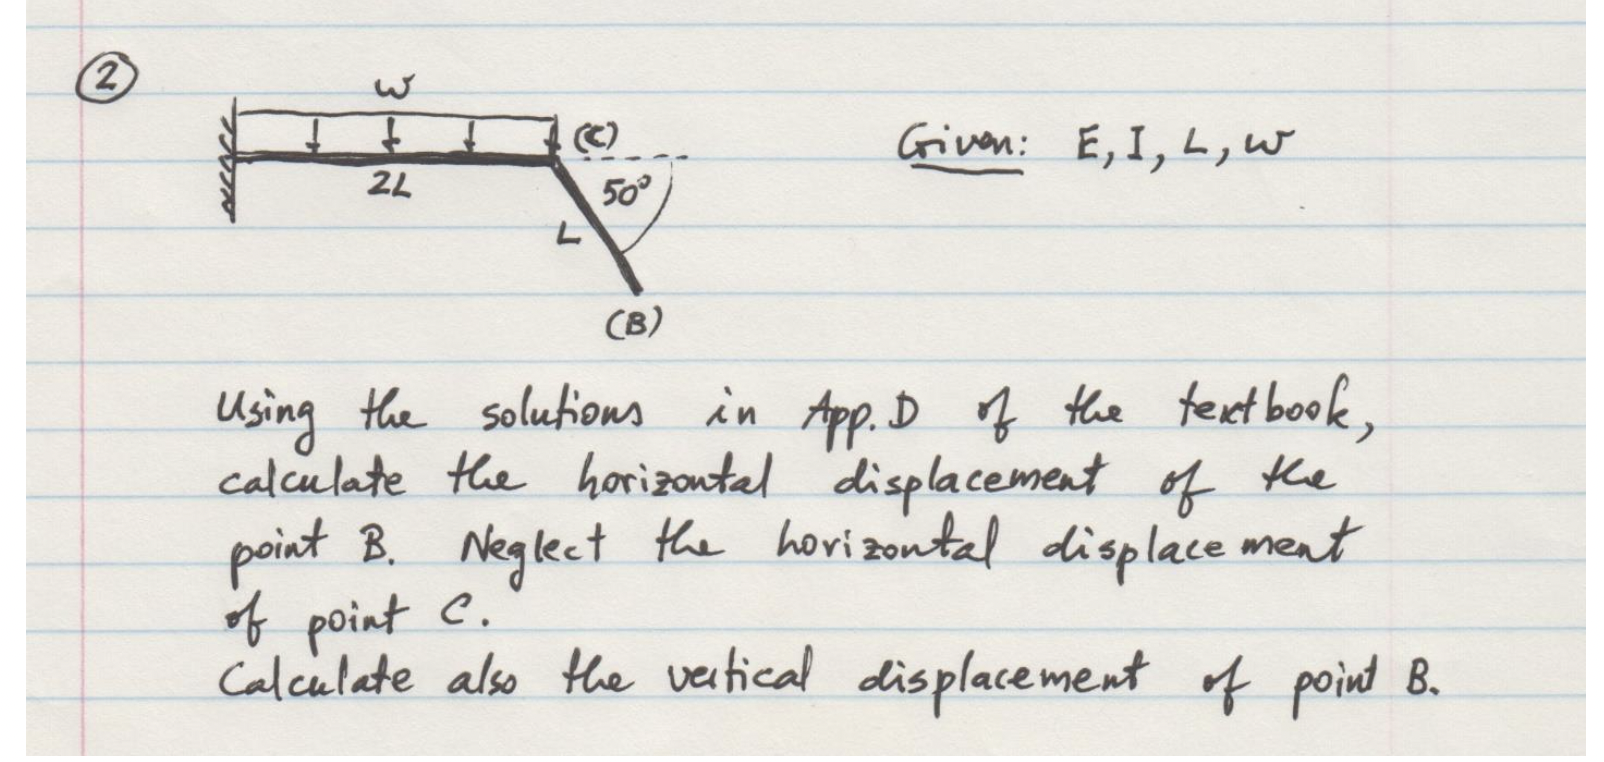 2
w
(C)
Given: E, I, L, w
2L
50°
L
(B)
Using the solutions in App. D of the textbook,
calculate the horizontal displacement of the
point B. Neglect the horizontal displacement
of point C.
Calculate also the vertical displacement of point B.